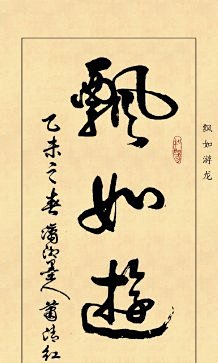 飘如游龙
飘如游
乙未之春潇湘墨人萧清红